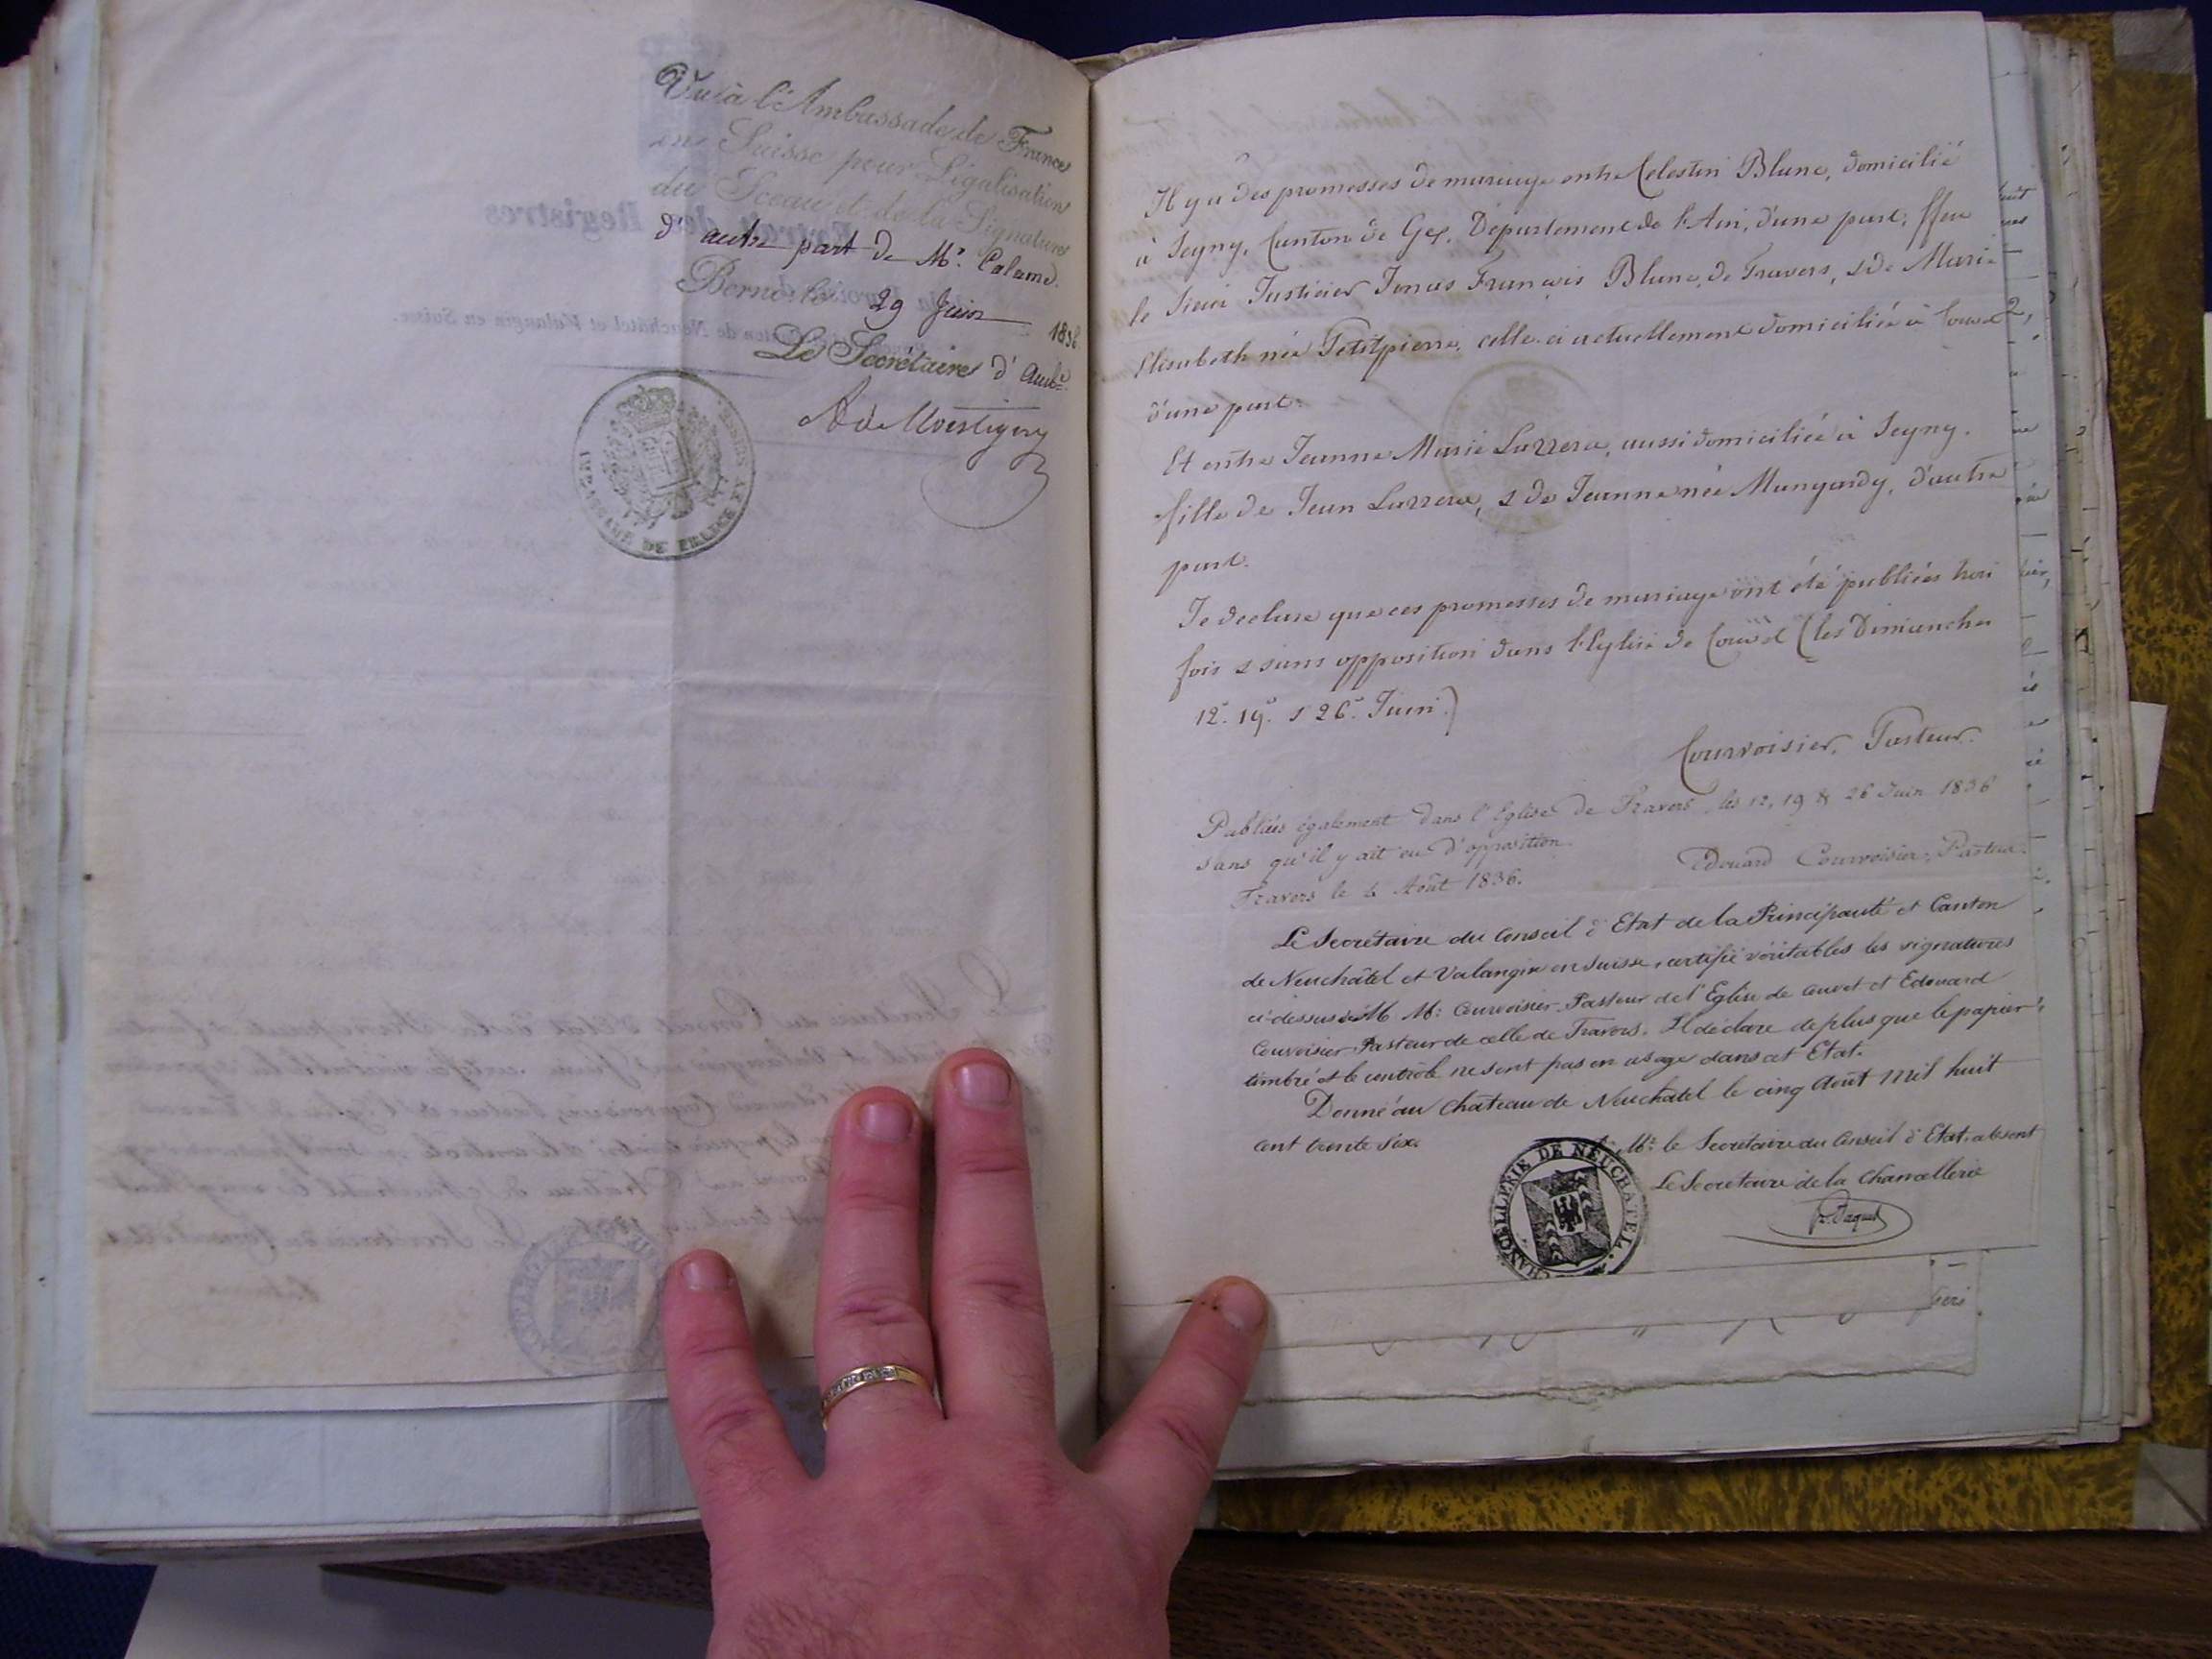 Vu à l'Ambassade de France
en Suisse pour Légalisation
du Sceau et de la Signature
d'autre part de Mr. Calame.
Berne, le 29 Juin 1836
Le Secrétaire d'Ambe.
AMBASSADE DE FRANCE EN SUISSE
Il y a des promesses de mariage entre Celestin Blanc, domicilié
à Segny, Canton de Gex, Département de l'Ain, d'une part, ffeu
le Sieur Justicier Jonas François Blanc, de Travers, & de Marie
Elisabeth née Petitpierre, celle-ci actuellement domiciliée à Couvet,
d'une part.
Et entre Jeanne Marie Lazzera, aussi domiciliée à Segny,
fille de Jean Lazzera, & de Jeanne née Mungardy, d'autre
part.
Je declare que ces promesses de mariage ont été publiées trois
fois & sans opposition dans l'Eglise de Couvet (les Dimanches
12e. 19e. & 26e. Juin.)
Courvoisier, Pasteur.
Publiés également dans l'Eglise de Travers, les 12, 19 & 26 Juin 1836
sans qu'il y ait eu d'opposition.
Travers le 4 Août 1836. Edouard Courvoisier, Pasteur.
Le Secrétaire du Conseil d'Etat de la Principauté et Canton
de Neuchâtel et Valangin en Suisse, certifie véritables les signatures
ci-dessus de M. M: Courvoisier Pasteur de l'Eglise de Couvet et Edouard
Courvoisier Pasteur de celle de Travers. Il déclare de plus que le papier
timbré et le contrôle ne sont pas en usage dans cet Etat.
Donné au Château de Neuchâtel le cinq Août mil huit
cent trente six.
Mr. le Secrétaire du Conseil d'Etat absent
Le Secrétaire de la Chancellerie
CHANCELLERIE DE NEUCHATEL.